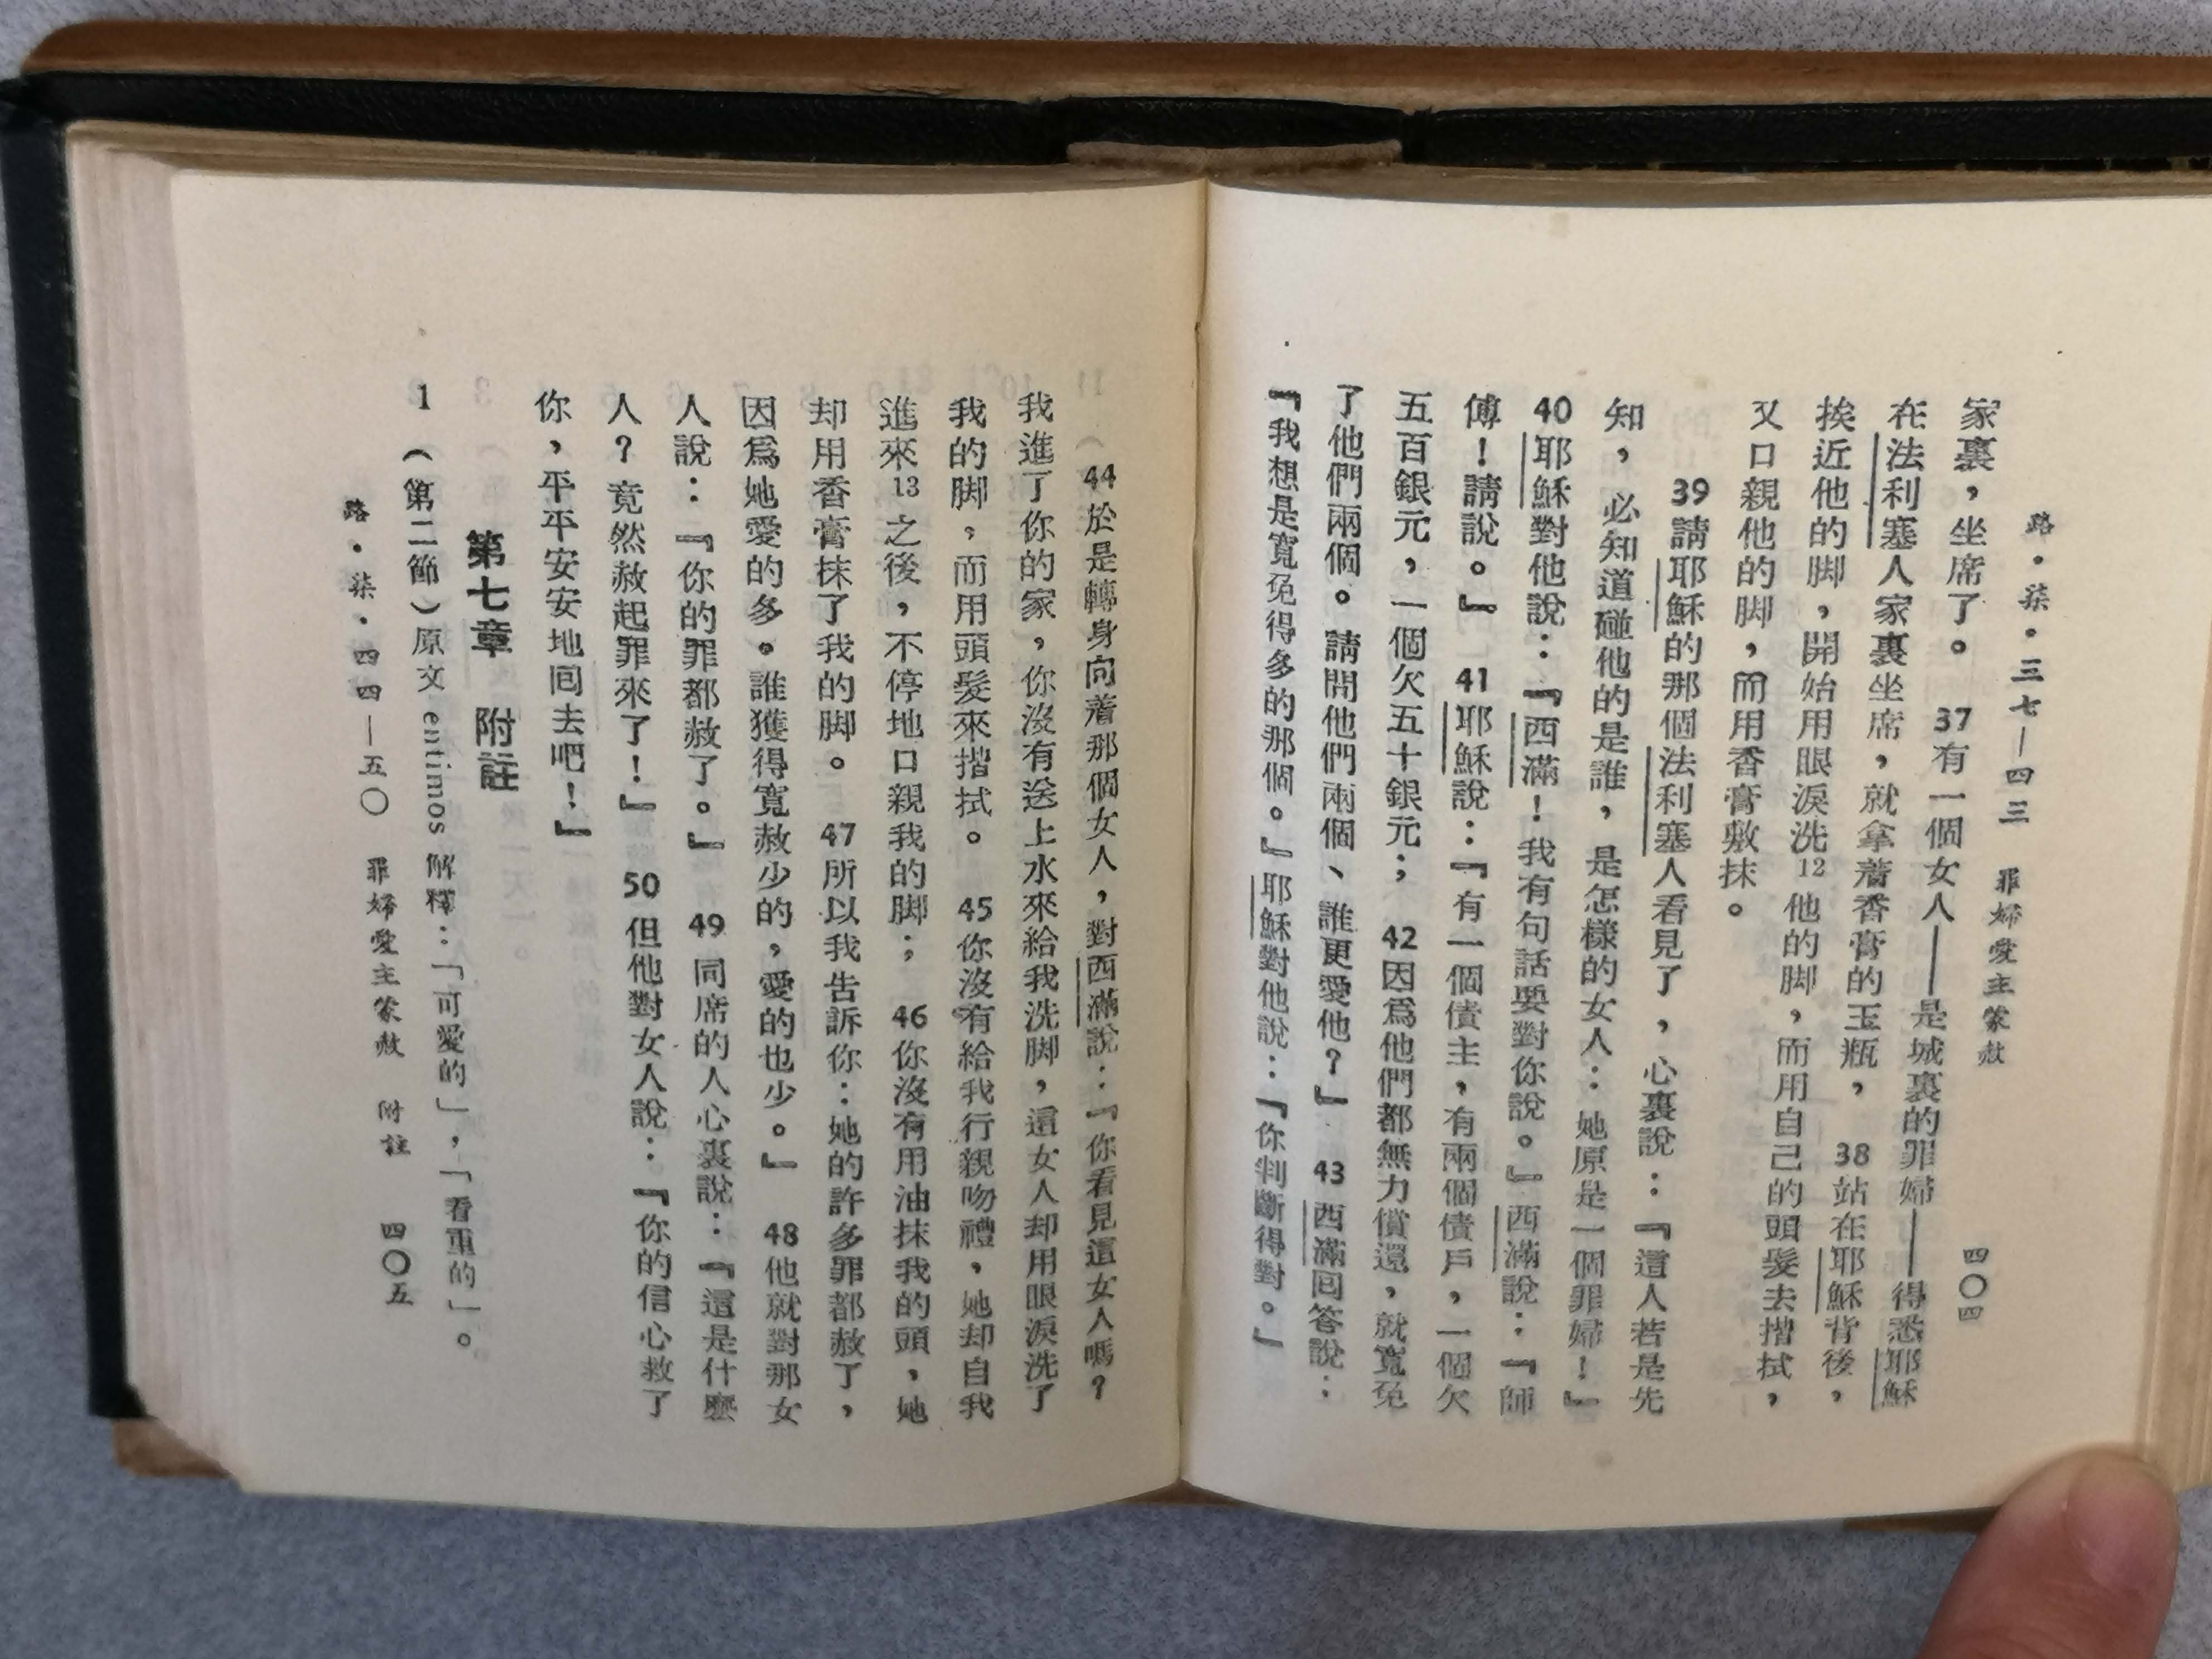 路・柒・三七—四三　罪婦愛主蒙赦　四〇四
家裏，坐席了。　37有一個女人——是城裏的罪婦——得悉耶穌
在法利塞人家裏坐席，就拿着香膏的玉瓶，　38站在耶穌背後，
挨近他的脚，開始用眼淚洗12他的脚，而用自己的頭髮去揩拭，
又口親他的脚，而用香膏敷抹。
39請耶穌的那個法利塞人看見了，心裏說：『這人若是先
知，必知道碰他的是誰，是怎樣的女人：她原是一個罪婦！』
40耶穌對他說：『西滿！我有句話要對你說。』西滿說：『師
傅！請說。』　41耶穌說：『有一個債主，有兩個債戶，一個欠
五百銀元，一個欠五十銀元；　42因爲他們都無力償還，就寬免
了他們兩個。請問他們兩個、誰更愛他？』　43西滿囘答說：
『我想是寬免得多的那個。』耶穌對他說：『你判斷得對。』
44於是轉身向着那個女人，對西滿說：『你看見這女人嗎？
我進了你的家，你沒有送上水來給我洗脚，這女人却用眼淚洗了
我的脚，而用頭髮來揩拭。　45你沒有給我行親吻禮，她却自我
進來13之後，不停地口親我的脚；　46你沒有用油抹我的頭，她
却用香膏抹了我的脚。　47所以我告訴你：她的許多罪都赦了，
因爲她愛的多。誰獲得寬赦少的，愛的也少。』　48他就對那女
人說：『你的罪都赦了。』　49同席的人心裏說：『這是什麼
人？竟然赦起罪來了！』　50但他對女人說：『你的信心救了
你，平平安安地囘去吧！』
第七章　附註
1（第二節）原文 entimos 解釋：「可愛的」，「看重的」。
路・柒・四四—五〇　罪婦愛主蒙赦　附註　四〇五